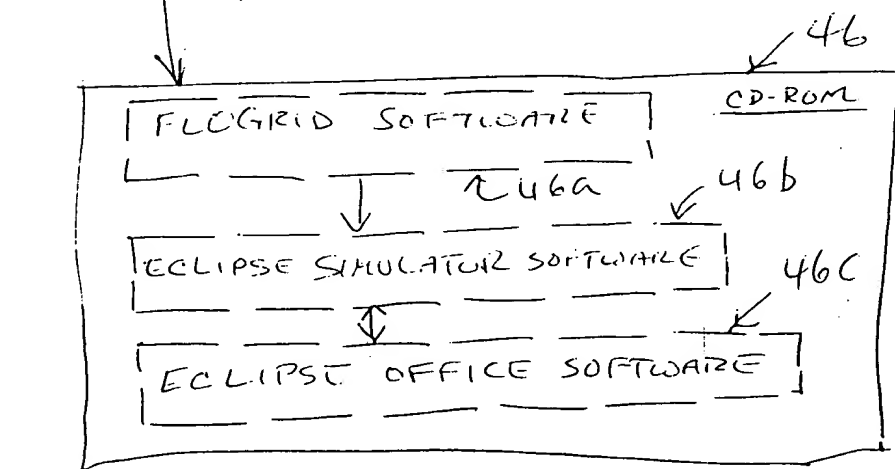 46
CD-ROM
FLOGRID SOFTWARE
46a
46b
ECLIPSE SIMULATOR SOFTWARE
46C
ECLIPSE OFFICE SOFTWARE